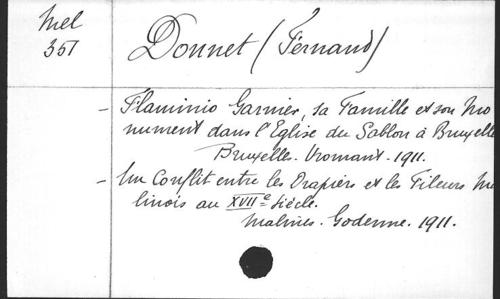 Mel
357
Donnet (Fernand)
- Flaminio Garnier, sa Famille et son Mo
nument dans l'Eglise du Sablon à Bruxelle
Bruxelle. Vromant. 1911.
- Un Conflit entre les Drapiers et les Fileurs Ma
linois au XVIIe Siècle.
Malines. Godenne. 1911.